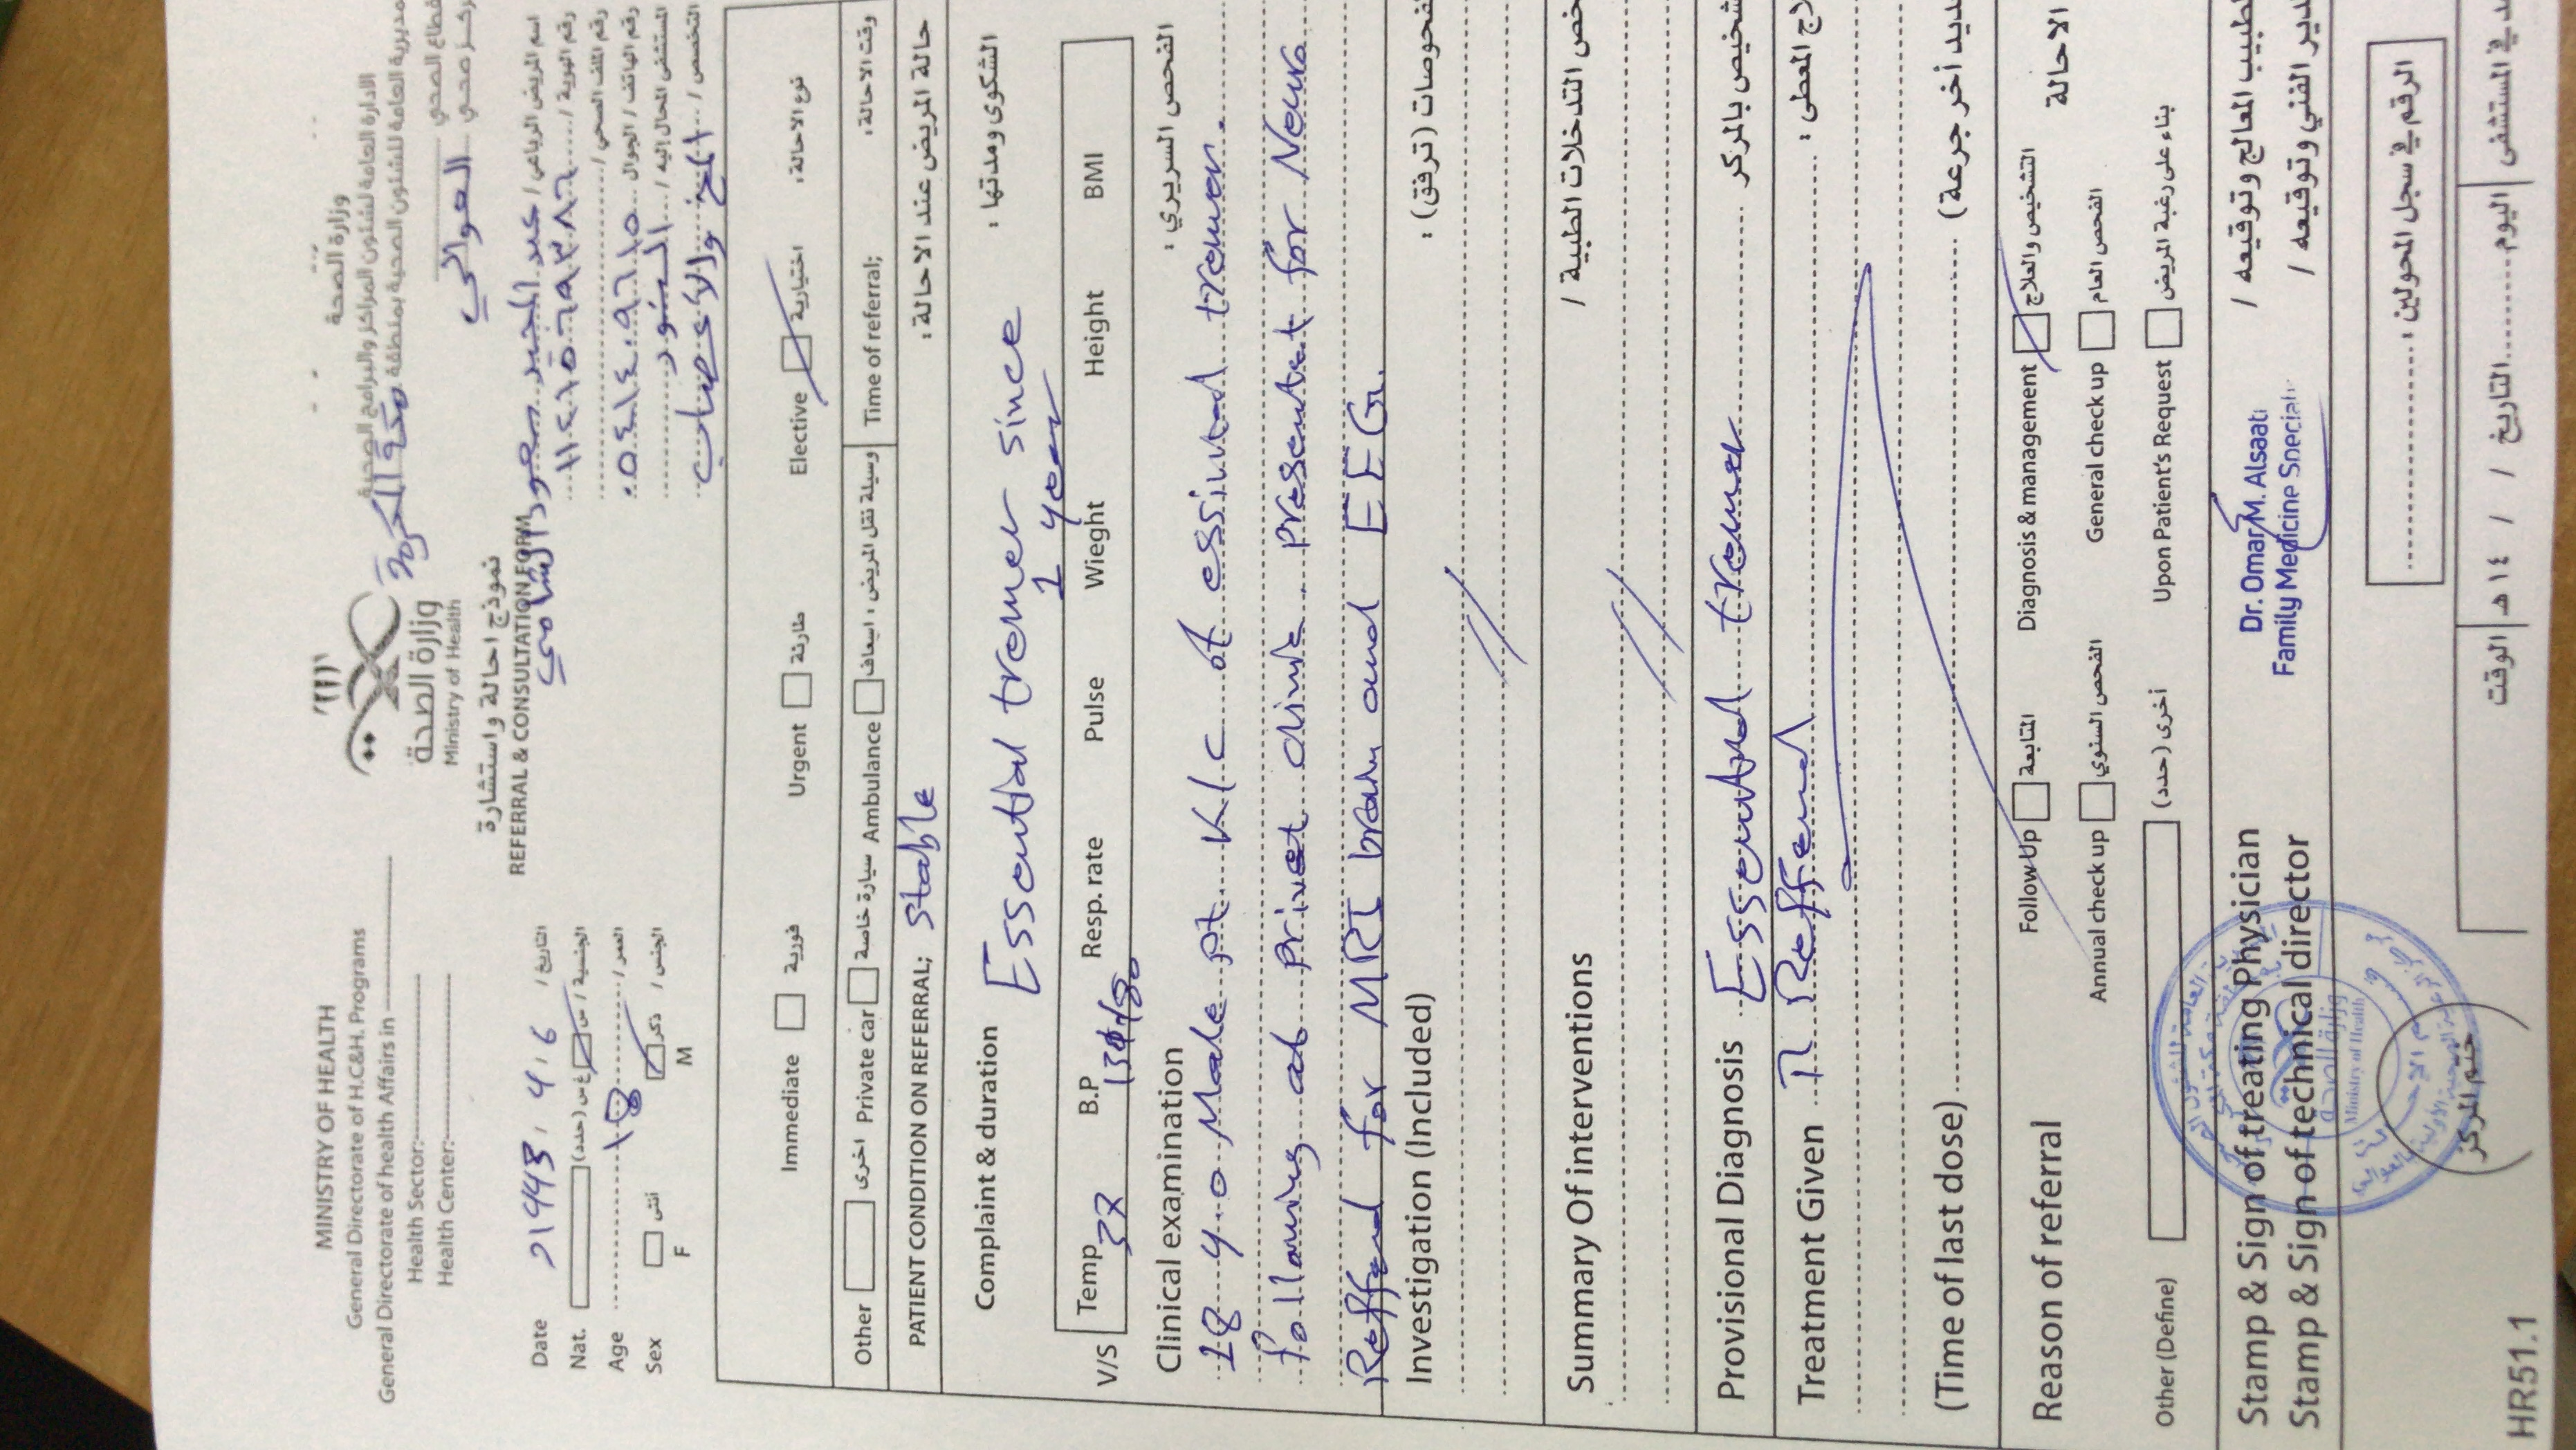 MINISTRY OF HEALTH
General Directorate of H.C&H. Programs
General Directorate of health Affairs in
Health Sector:
Health Center:
وزارة الصحة
Ministry of Health
وزارة الصحة
الادارة العامة لشئون المراكز والبرامج الصحية
مديرية العامة للشئون الصحية بمنطقة مكة المكرمة
قطاع الصحي
ركز صحي العوالي
نموذج احالة واستشارة
REFERRAL & CONSULTATION FORM
Date 1443 / 4 / 6 التاريخ /
Nat. (حدد) غ س س / الجنسية
Age 18 العمر /
Sex أنثى ذكر الجنس /
F M
اسم المريض الرباعي / عبد المجيد سعود الشامي
رقم الهوية /
رقم الملف الصحي /
رقم الهاتف / الجوال
المستشفى المحال إليه / النور
التخصص / المخ والأعصاب
Immediate فورية Urgent طارئة Elective اختيارية نوع الاحالة:
Other اخرى Private car سيارة خاصة Ambulance وسيلة نقل المريض : اسعاف Time of referral; وقت الاحالة:
PATIENT CONDITION ON REFERRAL; Stable حالة المريض عند الاحالة:
Complaint & duration Essential tremer since الشكوى ومدتها:
1 year
V/S Temp 37 B.P Resp. rate Pulse Wieght Height BMI
Clinical examination الفحص السريري:
18 y.o Male pt. K/c of tremer.
following at privet clinic. presentet for Neuro
for MRI brain and EEG.
Investigation (Included) فحوصات (ترفق):
Summary Of interventions خص التدخلات الطبية /
Provisional Diagnosis Essential tremer شخيص بالمركز
Treatment Given لاج المعطى:
(Time of last dose) ديد أخر جرعة)
Reason of referral Follow Up المتابعة Diagnosis & management التشخيص والعلاج الاحالة
Annual check up الفحص السنوي General check up الفحص العام
Other (Define) أخرى (حدد) Upon Patient's Request بناء على رغبة المريض
Stamp & Sign of treating Physician Dr. Omar M. Alsaati طبيب المعالج وتوقيعه /
Stamp & Sign of technical director Family Medicine Speciali دير الفني وتوقيعه /
وزارة الصحة
Ministry of Health
ختم المركز
الرقم في سجل المحولين:
د في المستشفى اليوم التاريخ / / ١٤ هـ الوقت
HR51.1